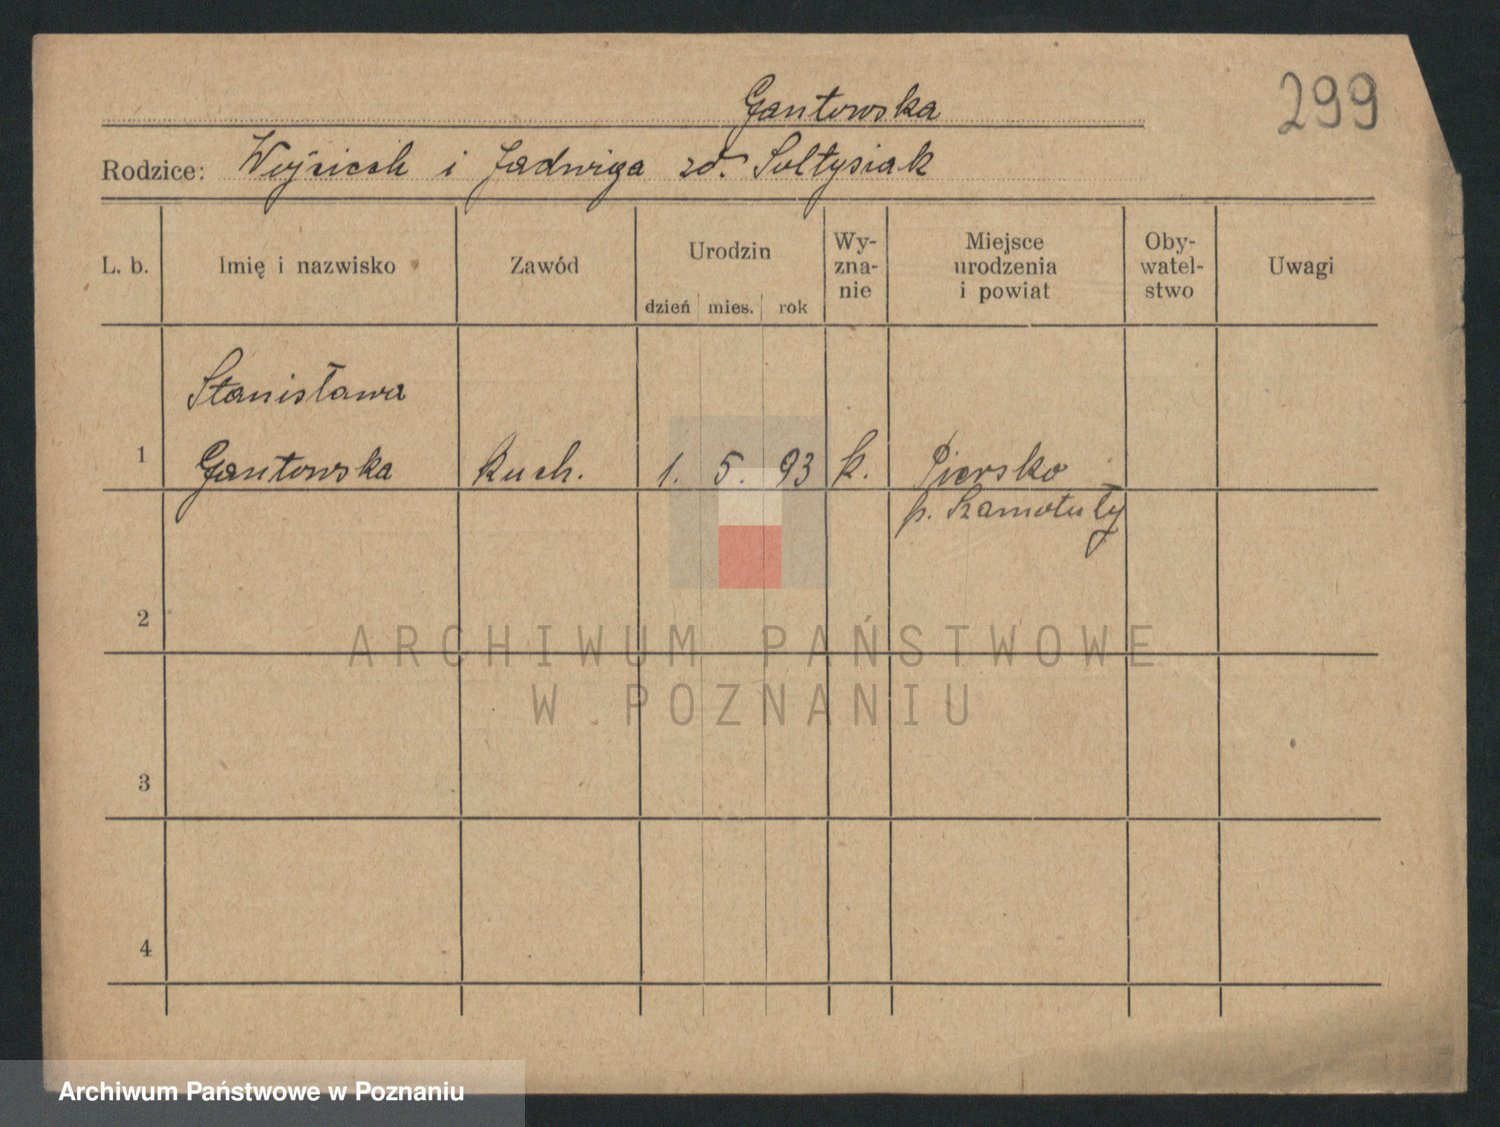 299
Gantowska
Rodzice: Wojciech i Jadwiga zd. Sołtysiak
L. b.
Imię i nazwisko
Zawód
Urodzin
dzień mies. rok
Wy-
zna-
nie
Miejsce
urodzenia
i powiat
Oby-
watel-
stwo
Uwagi
Stanisława
1 Gantowska kuch. 1. 5. 93 k. Piersko
p. Szamotuły
2
3
4
ARCHIWUM PAŃSTWOWE
W POZNANIU
Archiwum Państwowe w Poznaniu